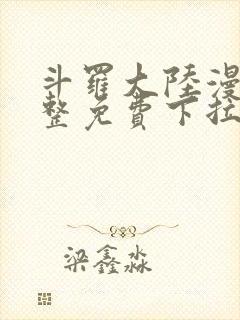 斗羅大陸漫
整免費下拉
梁鑫淼